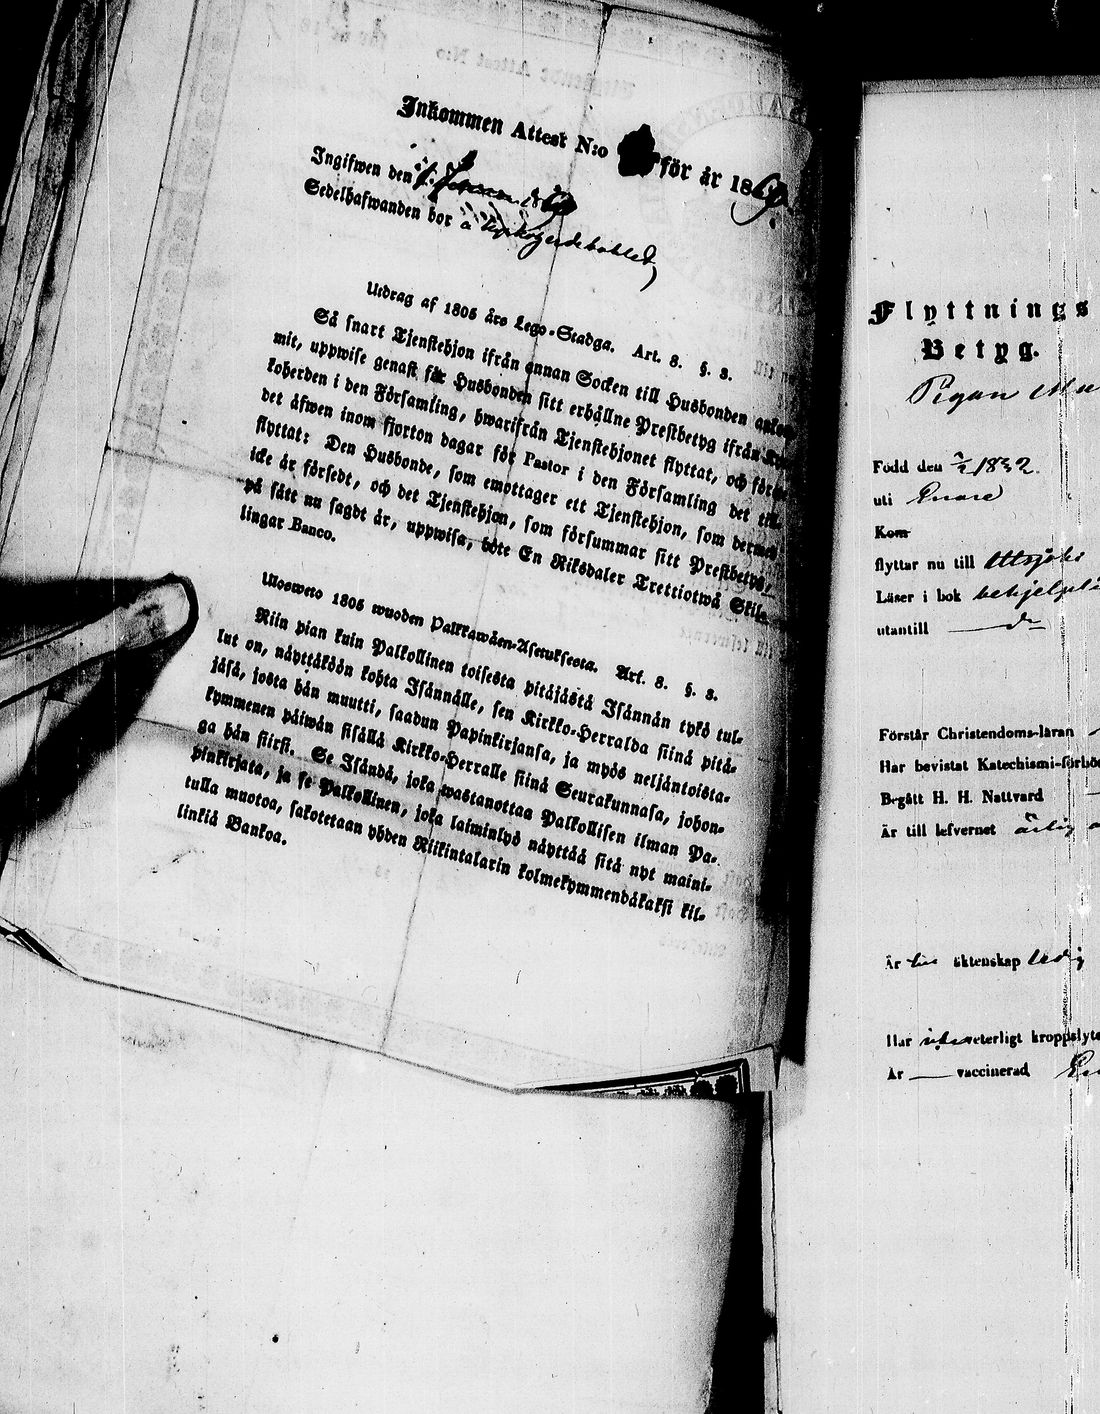 Inkommen Attest N:o för år 1869.
Ingifwen den 186
Sedelhafwanden bor å
Utdrag af 1805 års Lego-Stadga. Art. 8. §. 3.
Så snart Tjenstehjon ifrån annan Socken till Husbonden ankom-
mit, uppwise genast för Husbonden sitt erhållne Prestbetyg ifrån Kyr-
koherden i den Församling, hwarifrån Tjenstehjonet flyttat, och förete
det äfwen inom fjorton dagar för Pastor i den Församling det till-
flyttat: Den Husbonde, som emottager ett Tjenstehjon, som dermed
icke är försedt, och det Tjenstehjon, som försummar sitt Prestbetyg,
på sätt nu sagdt är, uppwisa, böte En Riksdaler Trettiotwå Skil-
lingar Banco.
Uloswero 1805 wuoden Palkkawäen-Asetuksesta. Art. 8. §. 3.
Niin pian kuin Palkollinen toisesta pitäjästä Isännän tykö tul-
lut on, näyttäköön kohta Isännälle, sen Kirkko-Herralda siinä pitä-
jäsä, josta hän muutti, saadun Papinkirjansa, ja myös neljäntoista-
kymmenen päiwän sisällä Kirkko-Herralle siinä Seurakunnasa, johon-
ga hän siirsi. Se Isändä, joka wastanottaa Palkollisen ilman Pa-
pinkirjata, ja se Palkollinen, joka laiminlyö näyttää sitä nyt maini-
tulla muotoa, sakotetaan yhden Riikintalarin kolmekymmendäkaksi kil-
linkiä Bankoa.
Flyttnings
Betyg.
Pigan
Född den 1832.
uti Enare
Kom
flyttar nu till Utsjoki
Läser i bok
utantill
Förstår Christendoms-läran
Har bevistat Katechismi-förhör
Begått H. H. Nattvard
Är till lefvernet ärlig
Är till äktenskap ledig
Har veterligt kroppslyte
Är vaccinerad